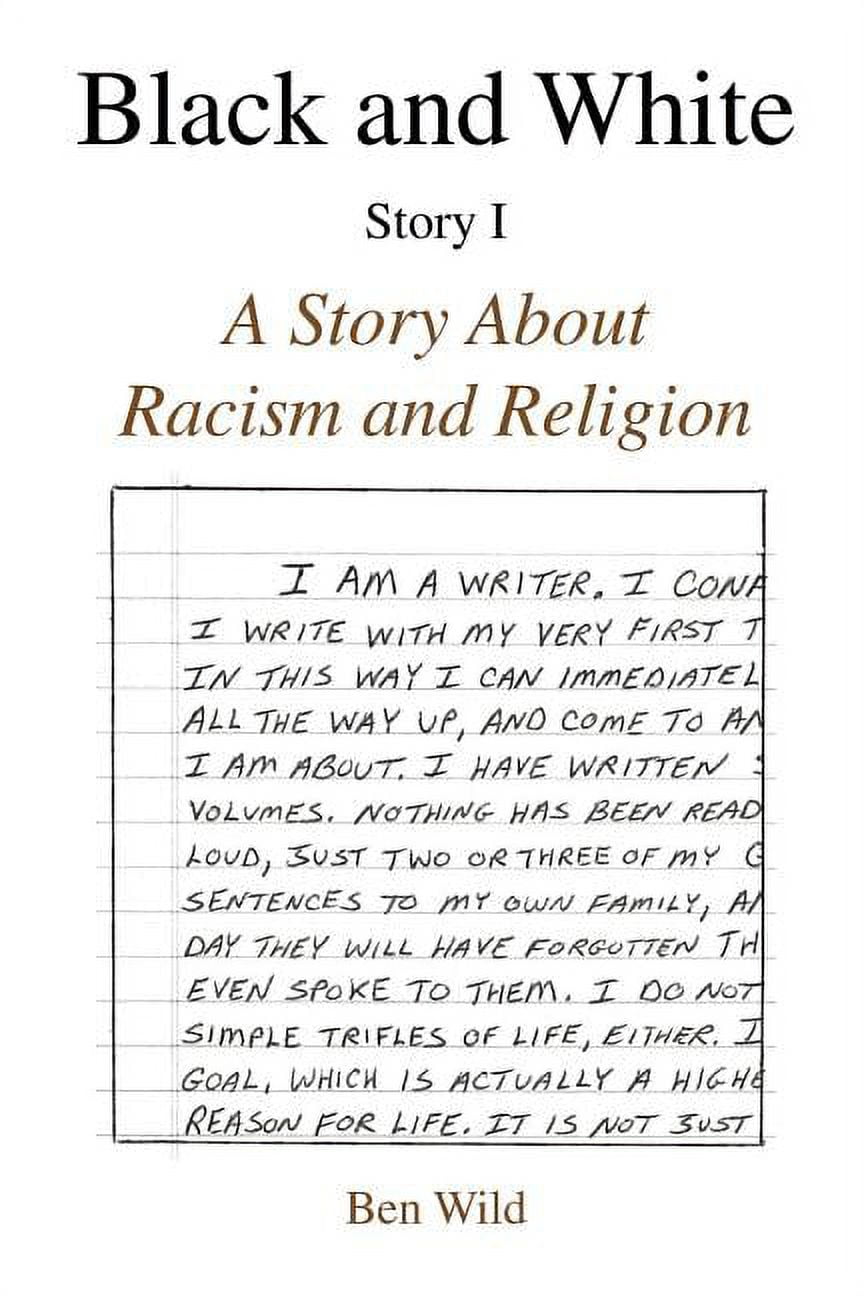 Black and White
Story I
A Story About
Racism and Religion
I AM A WRITER. I
I WRITE WITH MY VERY FIRST T
IN THIS WAY I CAN IMMEDIATEL
ALL THE WAY UP, AND COME TO AN
I AM ABOUT. I HAVE WRITTEN
VOLUMES. NOTHING HAS BEEN READ
LOUD, JUST TWO OR THREE OF MY
SENTENCES TO MY OWN FAMILY,
DAY THEY WILL HAVE FORGOTTEN TH
EVEN SPOKE TO THEM. I DO NOT
SIMPLE TRIFLES OF LIFE, EITHER. I
GOAL, WHICH IS ACTUALLY A HIGHE
REASON FOR LIFE. IT IS NOT JUST
Ben Wild